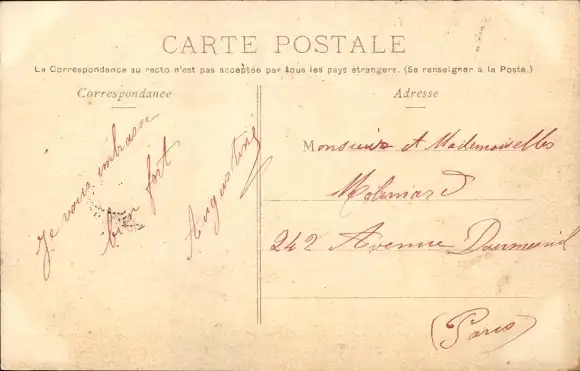 CARTE POSTALE
La Correspondance au recto n'est pas acceptée par tous les pays étrangers. (Se renseigner à la Poste.)
Correspondance
Je vous embrasse
bien fort
Augustine
Adresse
Monsieur et Mademoiselles
242 Avenue Daumesnil
(Paris)